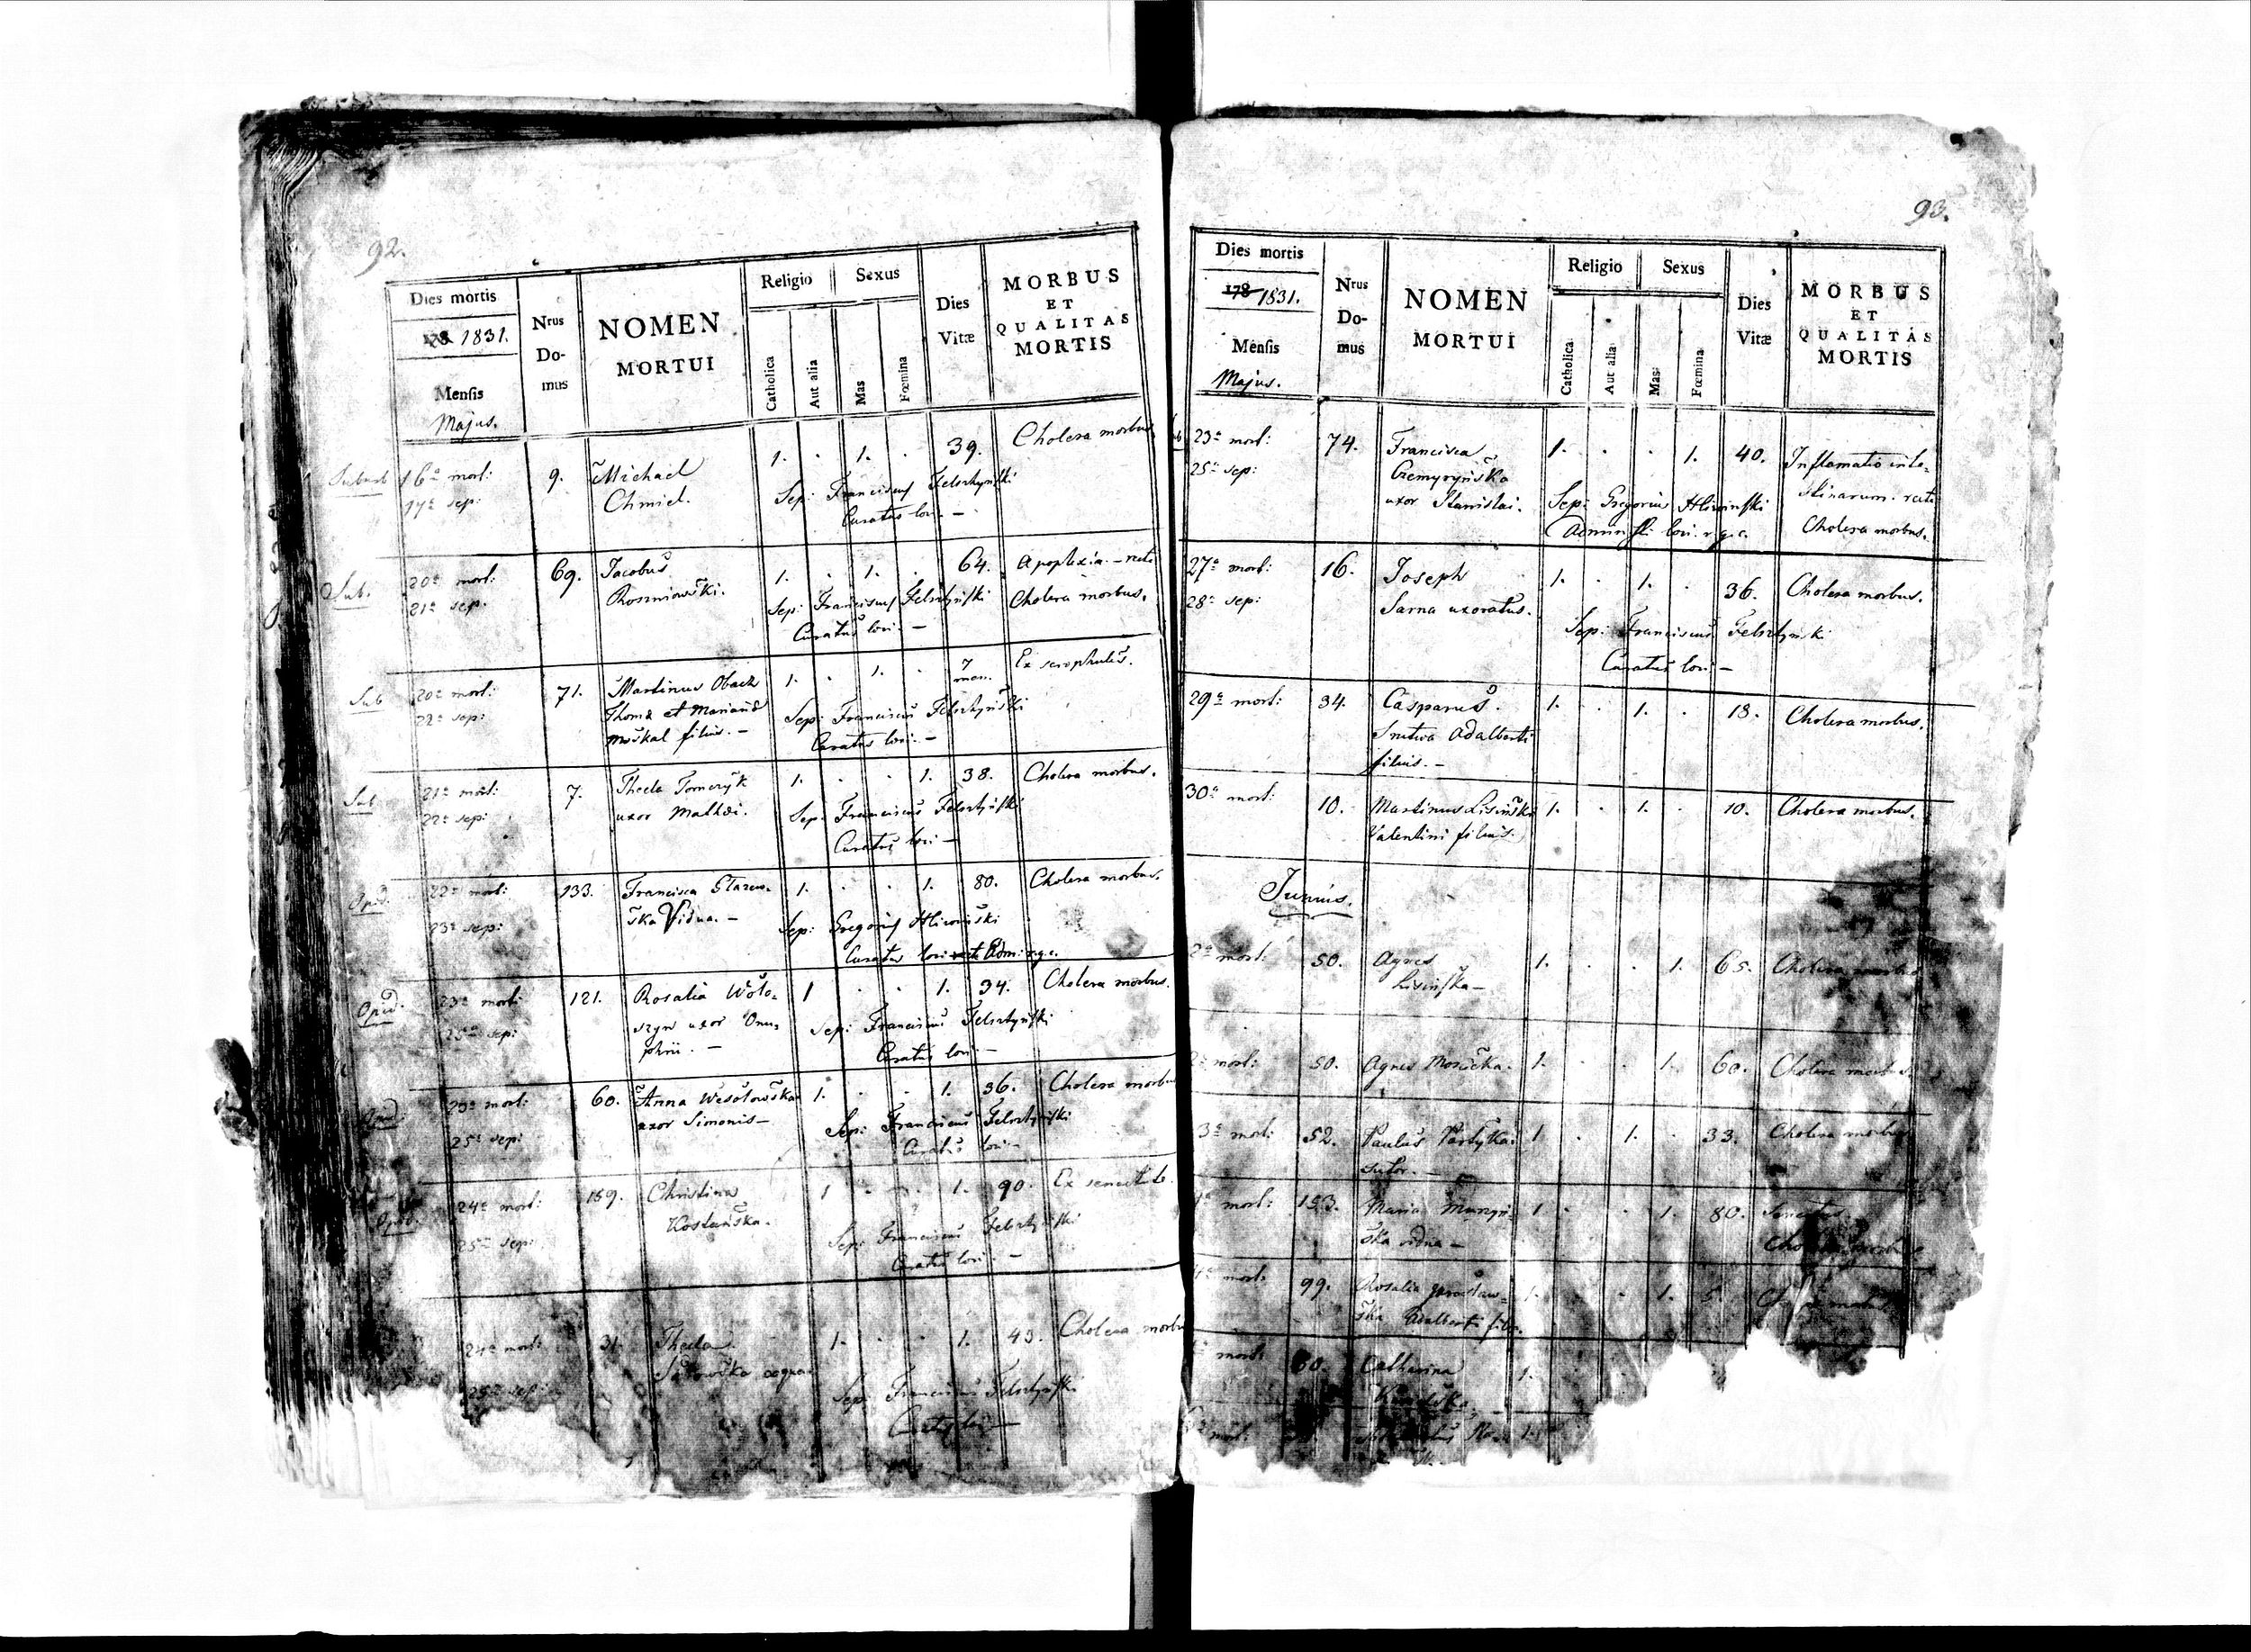 92.
Dies mortis
1831.
Mensis
Majus.
Nrus
Do-
mus
NOMEN
MORTUI
Religio
Sexus
Catholica
Aut alia
Mas
Fœmina
Dies
Vitæ
MORBUS
ET
QUALITAS
MORTIS
16a mort: 9. Michael 1. . 1. . 39. Cholera morbus
17a sep: Chmiel. Sep: Franciscus Felsztyński
Curatus loci. —
Sub. 20a mort: 69. Jacobus 1. . 1. . 64. Apoplexia. — recte
21a sep: Roszniowski. Sep: Franciscus Felsztyński Cholera morbus.
Curatus loci. —
Sub 20a mort: 71. Martinus Obach 1. . 1. . 7 men. Ex scrophulis.
22a sep: Thomæ et Marianæ Sep: Franciscus Felsztyński
Moskal filius. — Curatus loci. —
Sub 21a mort: 7. Thecla Tomczyk 1. . . 1. 38. Cholera morbus.
22a sep: uxor Mathæi. Sep: Franciscus Felsztyński
Curatus loci —
Opid. 22a mort: 133. Francisca Starzew- 1. . . 1. 80. Cholera morbus.
23a sep: ska Vidua. — Sep: Gregorius
Curatus loci recte Adm: r.g.c.
Opid. 23a mort: 121. Rosalia Woło- 1 . . 1. 34. Cholera morbus.
25a sep: szyn uxor Onu- Sep: Franciscus Felsztyński
phrii. — Curatus loci —
Opid. 23a mort: 60. Anna Wesołowska 1. . . 1. 36. Cholera morbus
25a sep: uxor Simonis — Sep: Franciscus Felsztyński
Curatus loci —
Opid. 24a mort: 159. Christina 1 . . 1. 90. Ex senectute.
25a sep: Kostańska. Sep: Franciscus Felsztyński
Curatus loci. —
24a mort: 31. Thecla 1. . . 1. 43. Cholera morbu
25a sep: Sep: Franciscus Felsztyński
Curatus loci —
93.
Dies mortis
178 1831.
Mensis
Majus.
Nrus
Do-
mus
NOMEN
MORTUI
Religio
Sexus
Catholica
Aut alia
Mas
Fœmina
Dies
Vitæ
MORBUS
ET
QUALITAS
MORTIS
23a mort: 74. Francisca 1. . . 1. 40. Inflamatio inte-
25a sep: Czemyryńska Sep: Gregorius stinarum. recte
uxor Stanislai. Administr. loci. r.g.c. Cholera morbus.
27a mort: 16. Joseph 1. . 1. . 36. Cholera morbus.
28a sep: Sarna uxoratus. Sep: Franciscus Felsztyński
Curatus loci —
29a mort: 34. Casparus. 1. . 1. . 18. Cholera morbus.
Adalberti
filius. —
30a mort: 10. Martinus Lisiński 1. . 1. . 10. Cholera morbus.
Valentini filius.
Junius.
2a mort: 50. Agnes 1. . . 1. 65. Cholera morbus
Lisińska —
mort: 50. Agnes 1. . . 1. 60. Cholera morbus.
3a mort: 52. Paulus Partyka 1 . 1. . 33. Cholera morbus
sutor. —
mort: 153. Maria 1 . . 1. 80. Senectus.
ska vidua — Cholera morbus
mort: 99. Rosalia Jarosław- 1. . . 1. 5.
ska Adalberti filia.
mort: 60. Catharina 1.
mort: